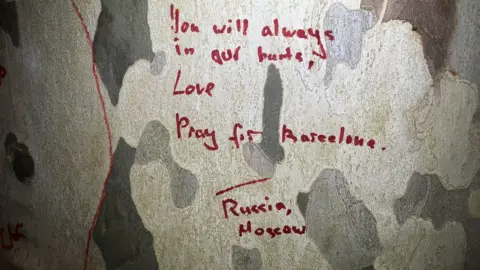 You will always
in our hearts,
Love
Pray for Barcelona.
Russia,
Moscow